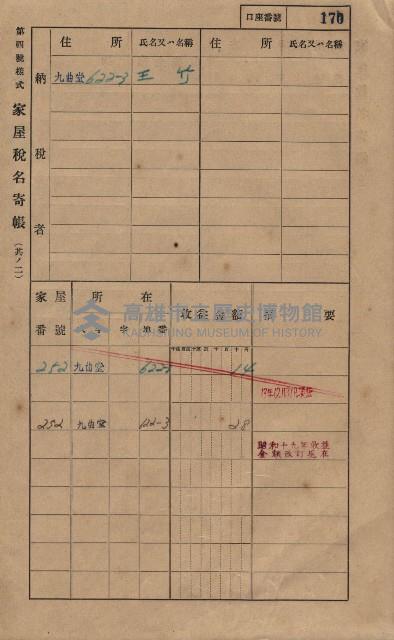 口座番號 170
第四號樣式 家屋稅名寄帳 (其ノ二)
納稅者
住所 氏名又ハ名稱 住所 氏名又ハ名稱
九曲堂 622-3 王
家屋番號 所在 收益金額 摘要
高雄市立歷史博物館
KAOHSIUNG MUSEUM OF HISTORY
252 九曲堂 14
252 九曲堂 28
昭和十九年收益
金額改訂